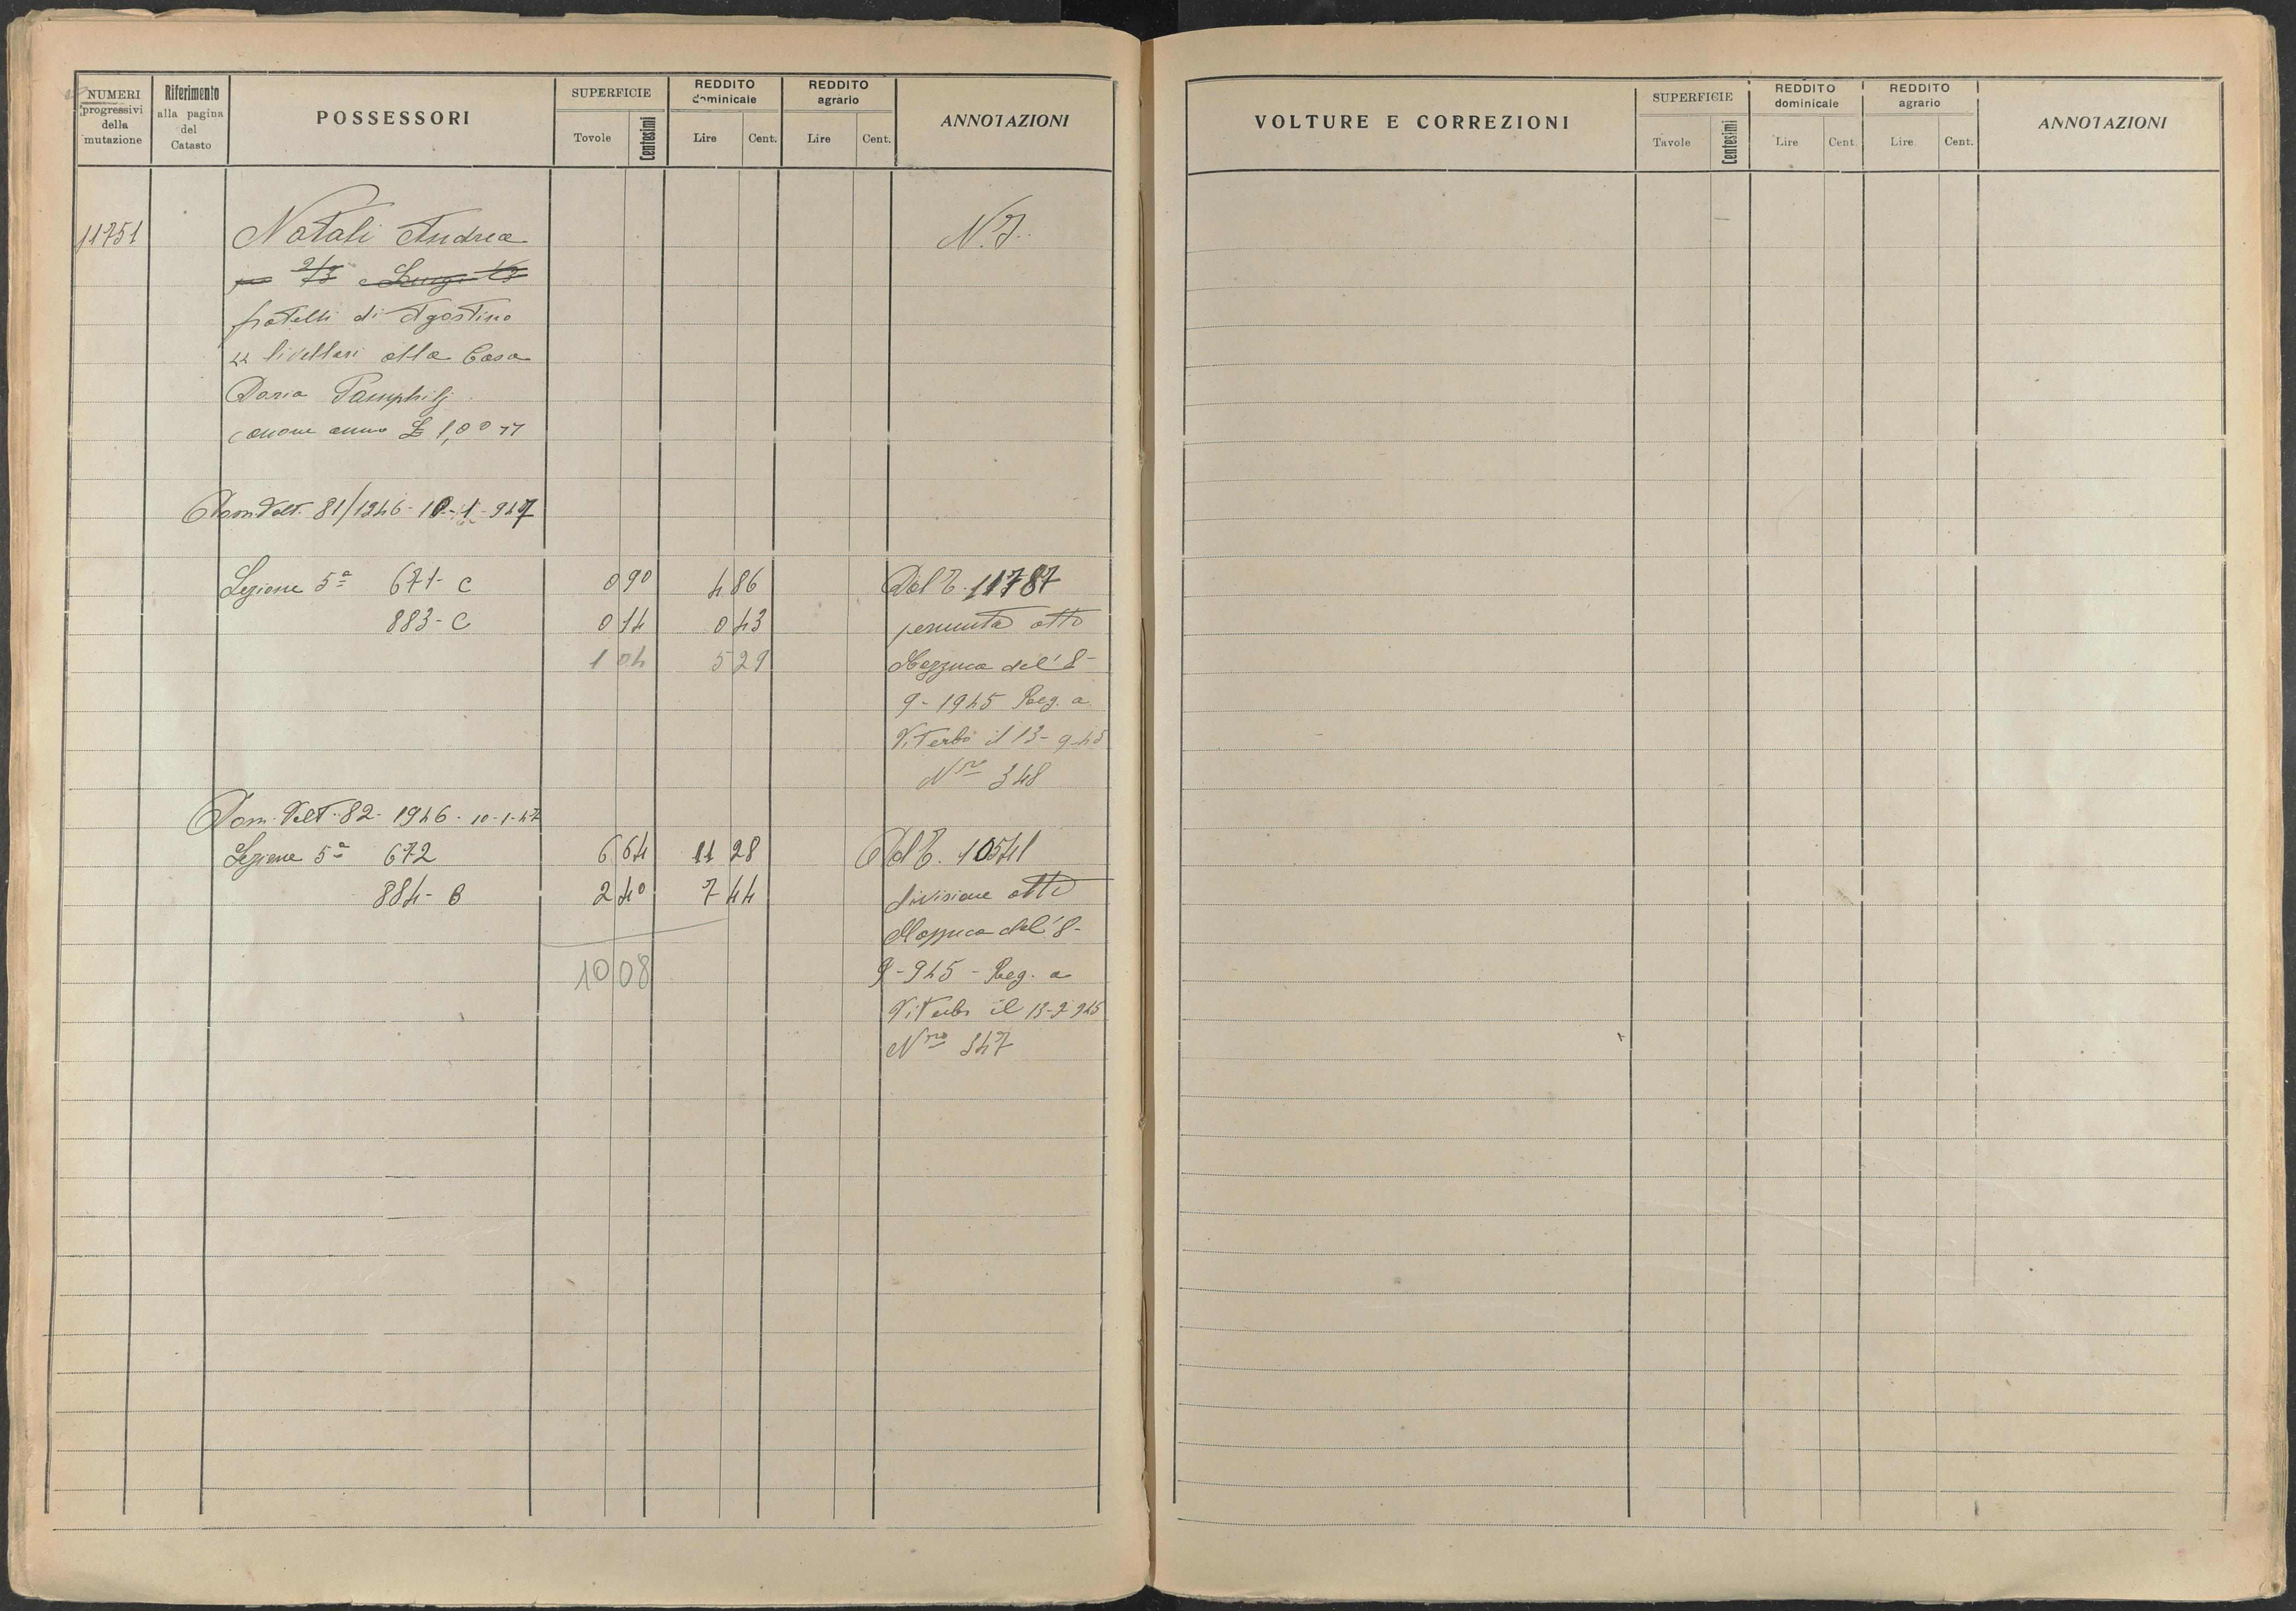 NUMERI progressivi della mutazione
Riferimento alla pagina del Catasto
POSSESSORI
SUPERFICIE
Tovole
Centesimi
REDDITO dominicale
Lire
Cent.
REDDITO agrario
Lire
Cent.
ANNOTAZIONI
11751
Natali Andrea
N.I.
per 2/3 e Luigi 1/3
fratelli di Agostino
" livellari alla Casa
Doria Pamphilj
canone annuo £ 1,00 "
Dom. Volt. 81/1946 - 10-1-947
Sezione 5ª 671- C 0 90 4 86 Dal T. 11787
883- C 0 14 0 43 permuta atto
1 04 5 29 Mazzuca del' 8-
9-1945 Reg. a
Viterbo il 13-9-45
Nro 348
Dom. Volt. 82- 1946 - 10-1-47
Sezione 5ª 672 6 64 11 28 Dal T. 10541
884- B 2 40 7 44 divisione atto
Mazzuca del' 8-
10 08 9-945 - Reg. a
Viterbo il 13-9-945
Nro 347
VOLTURE E CORREZIONI
SUPERFICIE
Tavole
Centesimi
REDDITO dominicale
Lire
Cent.
REDDITO agrario
Lire
Cent.
ANNOTAZIONI